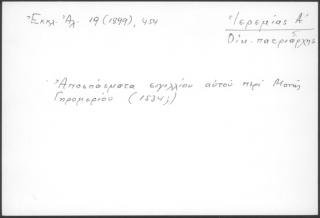 Ἐκκλ. Ἀλ. 19 (1899), 454
Ἱερεμίας Α΄
Οἰκ. πατριάρχης
Ἀποσπάσματα σιγιλλίου αὐτοῦ περὶ Μονῆς
Γηρομερίου (1534;)